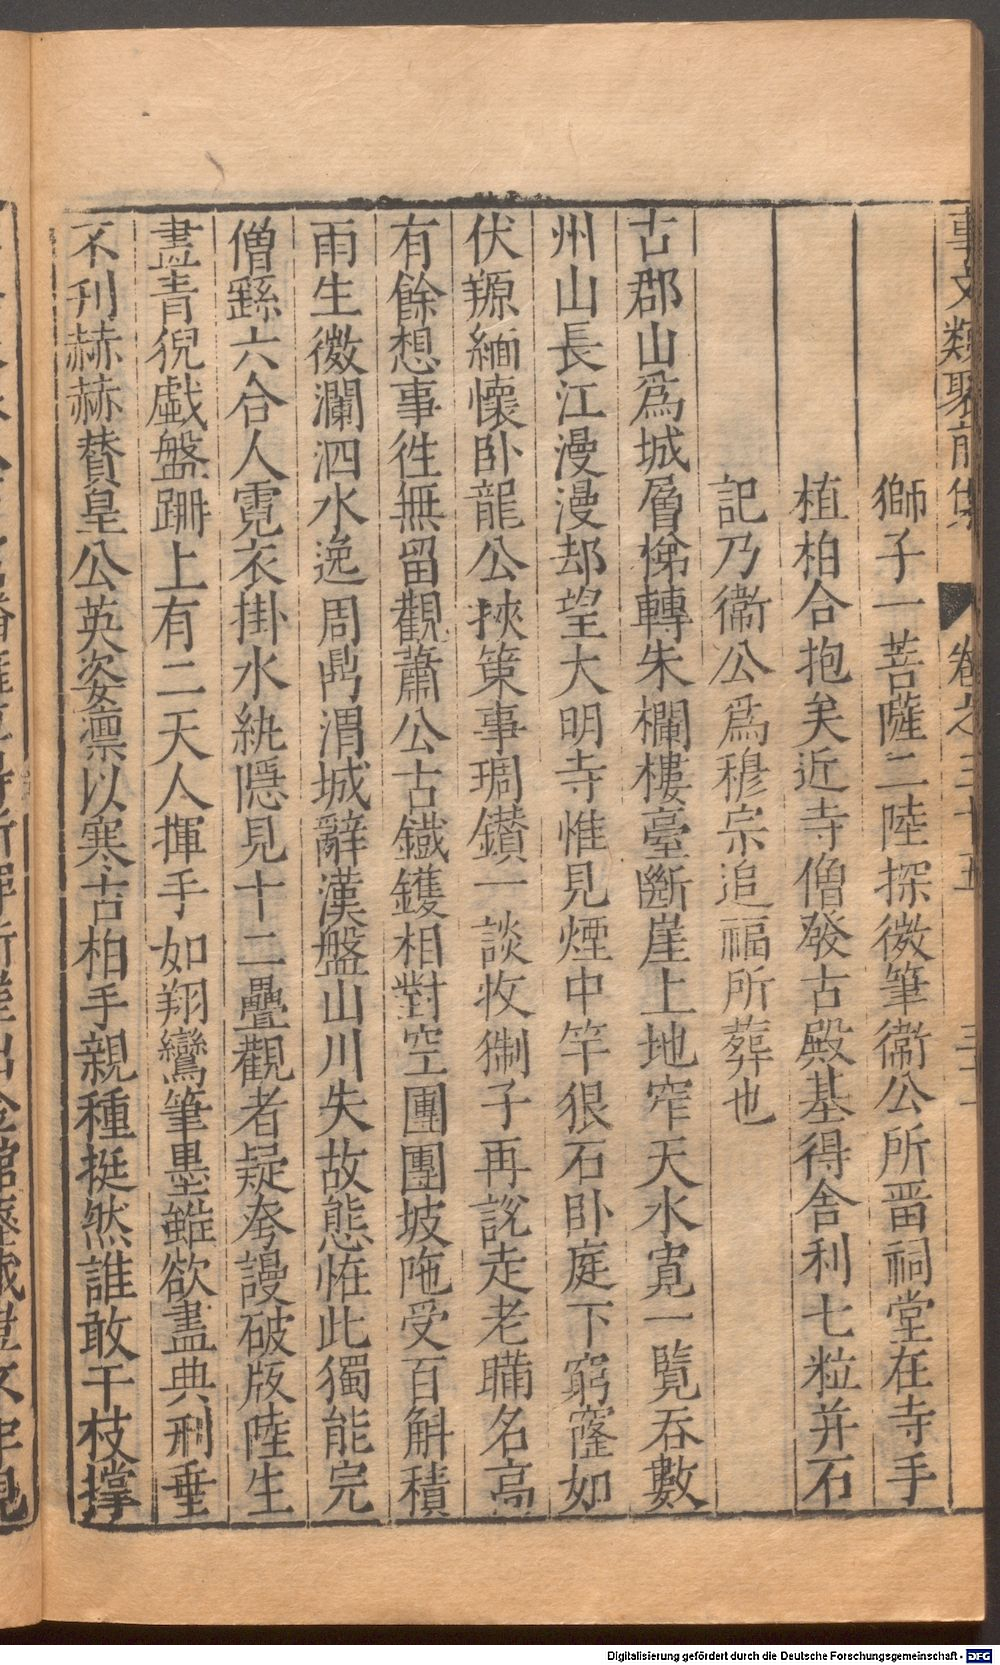 事文類聚前集 卷之三十五
獅子一菩薩二陸探微筆衞公所畱祠堂在寺手
植柏合抱矣近寺僧發古殿基得舍利七粒并石
記乃衞公爲穆宗追福所葬也
古郡山爲城層梯轉朱欄樓臺斷崖上地窄天水寛一覽吞數
州山長江漫漫却望大明寺惟見煙中竿狠石卧庭下穹窿如
伏羱緬懷卧龍公挾策事琱鑚一談收猘子再說走老瞞名高
有餘想事徃無留觀蕭公古鐵鑊相對空團團坡陁受百斛積
雨生微瀾泗水逸周鼎渭城辭漢盤山川失故態恠此獨能完
僧繇六合人霓衣掛水紈隱見十二疊觀者疑夸謾破版陸生
畫青猊戲盤跚上有二天人揮手如翔鸞筆墨雖欲盡典刑垂
不刊赫赫賛皇公英姿凛以寒古柏手親種挺然誰敢干枝撑
Digitalisierung gefördert durch die Deutsche Forschungsgemeinschaft - DFG